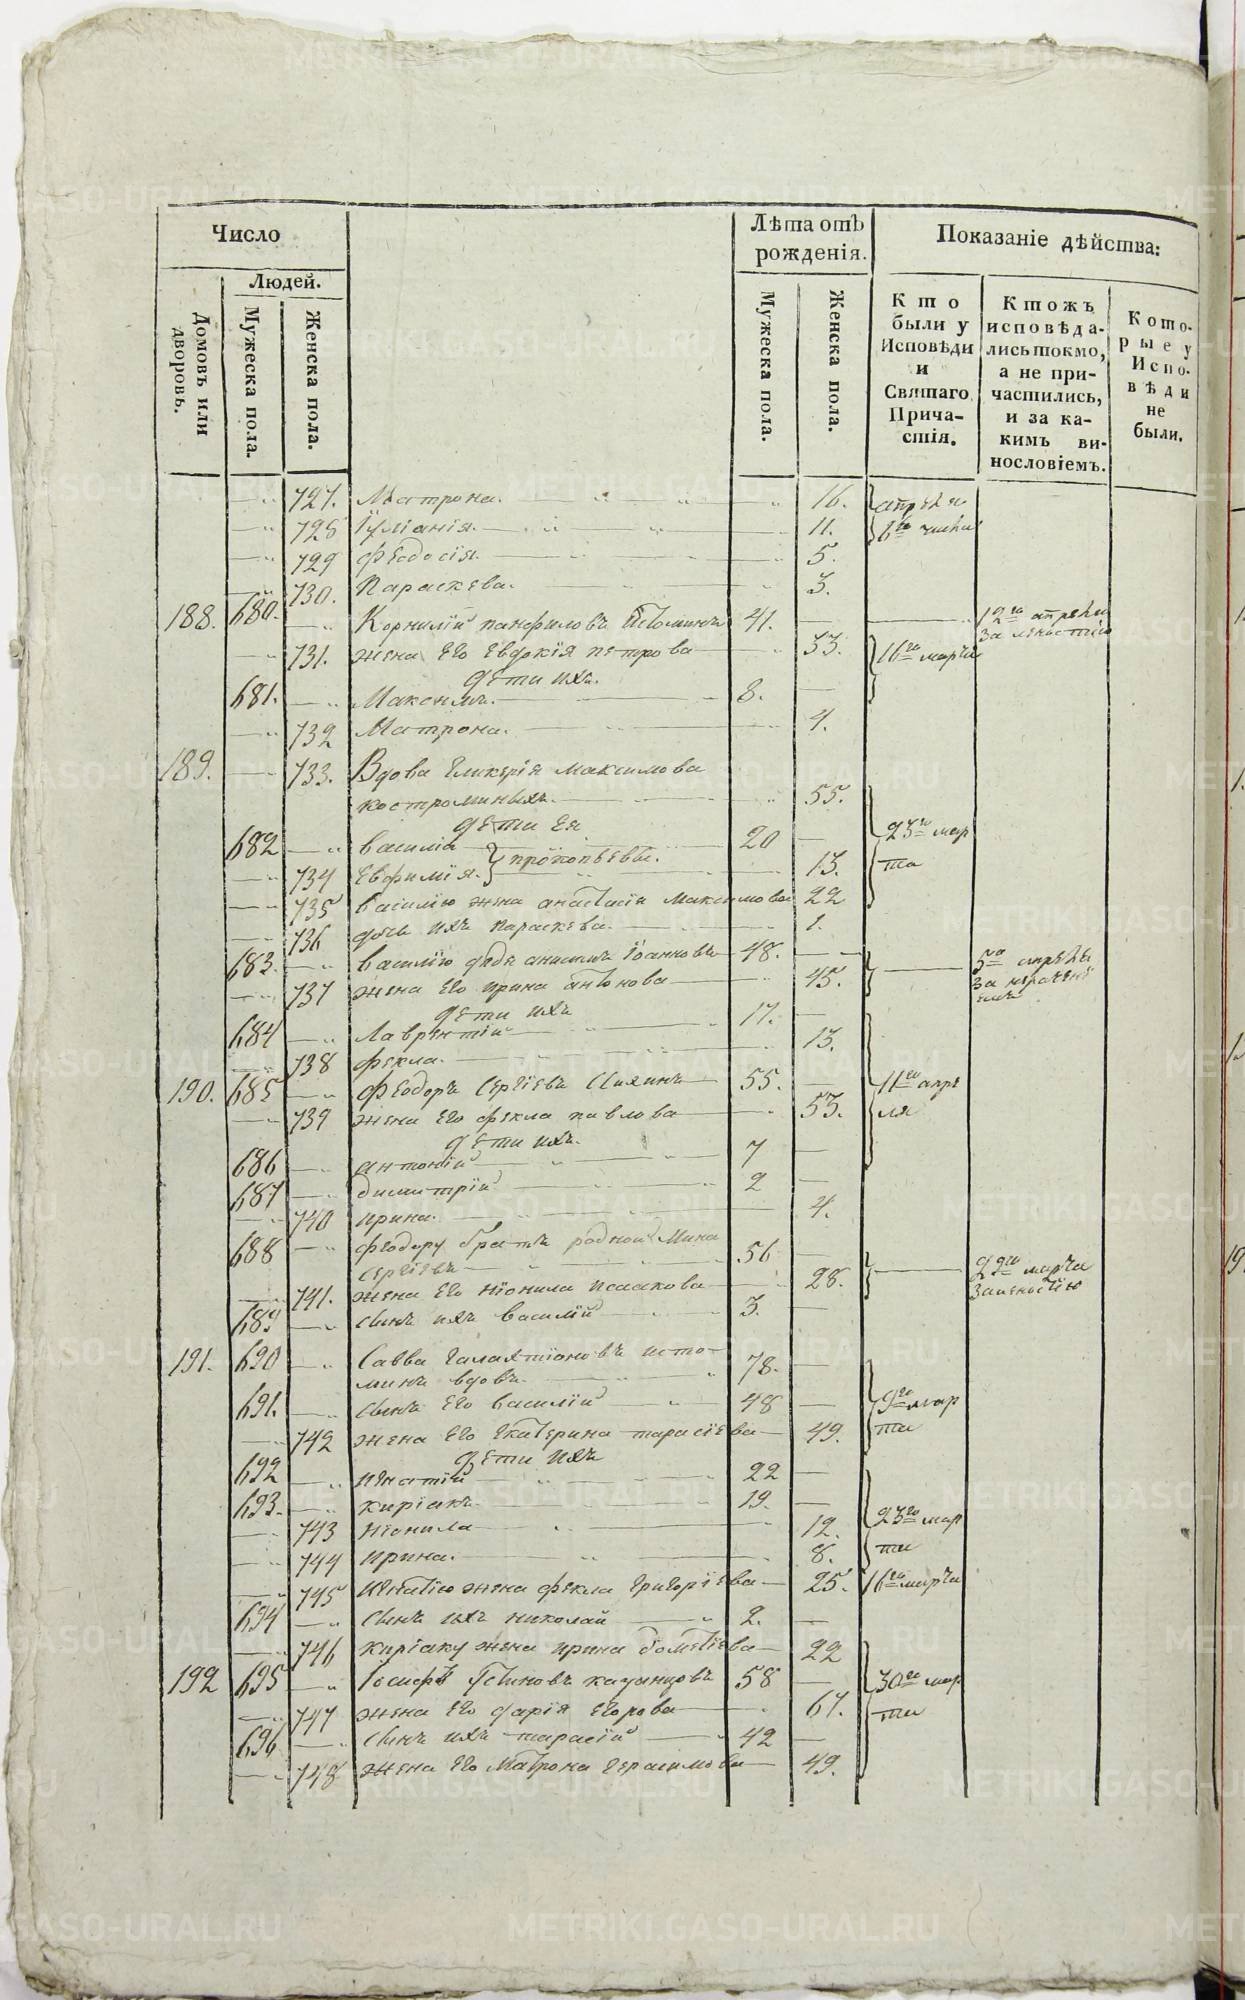 Число
Людей.
Домовъ или дворовъ.
Мужеска пола.
Женска пола.
Лѣта отъ рожденія.
Мужеска пола.
Женска пола.
Показаніе дѣйства:
Кто были у Исповѣди и Святаго Причастія.
Ктожъ исповѣдались токмо, а не причастились, и за какимъ винословіемъ.
Которые у Исповѣди не были.
727. Матрона. 16. апрѣля
728 Іуліанія. 11. 6го числа
729 Феодосія. 5.
730. Параскева. 3.
188. 680. Корнилій панфиловъ 41. 12го апрѣля за леностію
731. жена его Евдокія петрова 33. 16го марта
дети ихъ.
681. Максимъ. 8.
732 Матрона. 4.
189. 733. Вдова Гликерія максимова
костроминыхъ. 55.
дети ея
682 василіи 20 23го мар
734 Евфимія. прокопьевы. 13. та
735 василію жена анастасія максимова 22
736 дочь ихъ параскева. 1.
683. василію дядя анисимъ іоанновъ 48. 5го апрѣля
737 жена его ирина антонова 45. за нерачені
емъ
дети ихъ
684 Лаврентій 17.
738 фекла. 13.
190. 685 феодоръ Сергіевъ 55. 11го апре
739 жена его фекла павлова 53. ля
дети ихъ.
686 антоній 7
687 димитрій 2
740 ирина. 4.
688 феодору братъ родной Мина
Сергіевъ 56 29го марта
741. жена его Ніонила исаакова 28. за леностію
689 сынъ ихъ василій 3.
191. 690 Савва Галактіоновъ исто-
минъ вдовъ. 78.
691. сынъ его василій 48 9го мар
742 жена его Екатерина тарасіева 49. та
дети ихъ
692 игнатій 22
693. киріакъ 19. 23го мар
743 Ніонила 12. та
744 ирина. 8.
745 игнатію жена фекла григоріева 25. 16го марта
694 сынъ ихъ николай 2.
746 киріаку жена ирина дометіева 22
192 695 Іосифъ Устиновъ казанцовъ 58 30го мар
747 жена его дарія егорова 67. та
696 сынъ ихъ тарасій 42
748 жена его Матрона герасимова 49.
METRIKI.GASO-URAL.RU